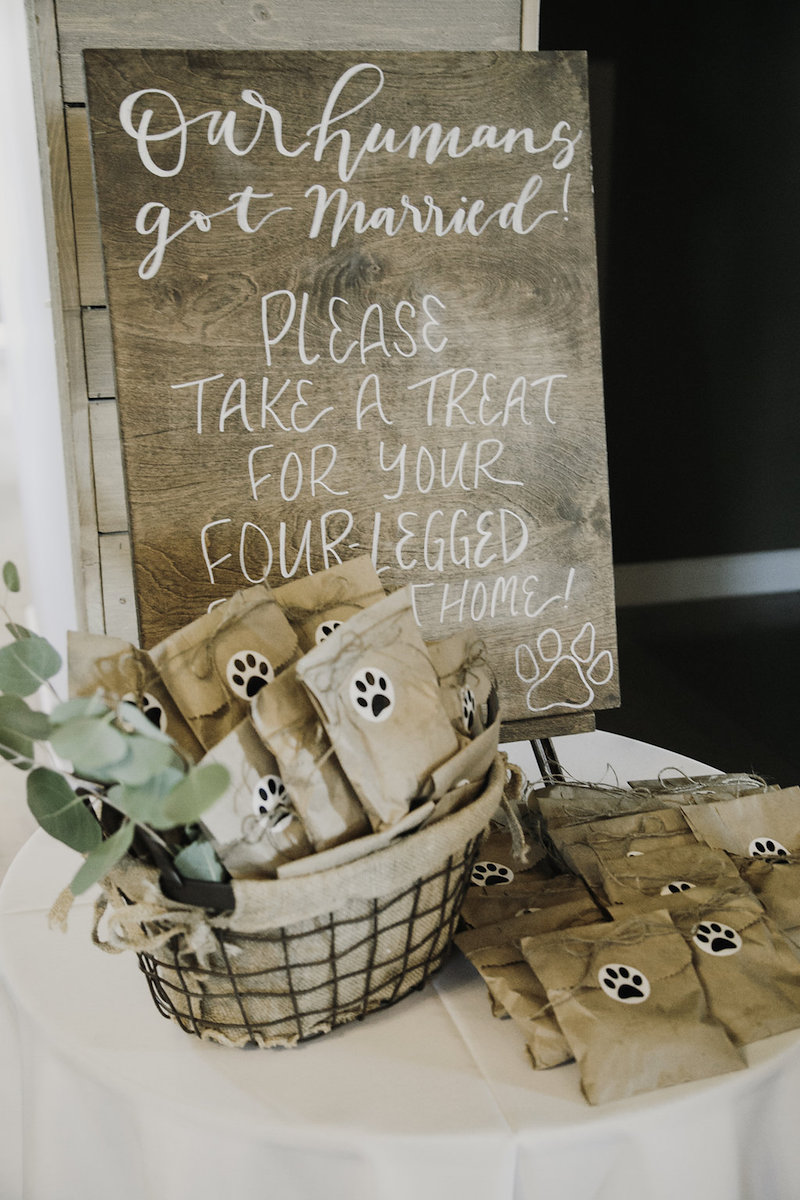 Our humans
got Married!
PLEASE
TAKE A TREAT
FOR YOUR
FOUR-LEGGED
HOME!